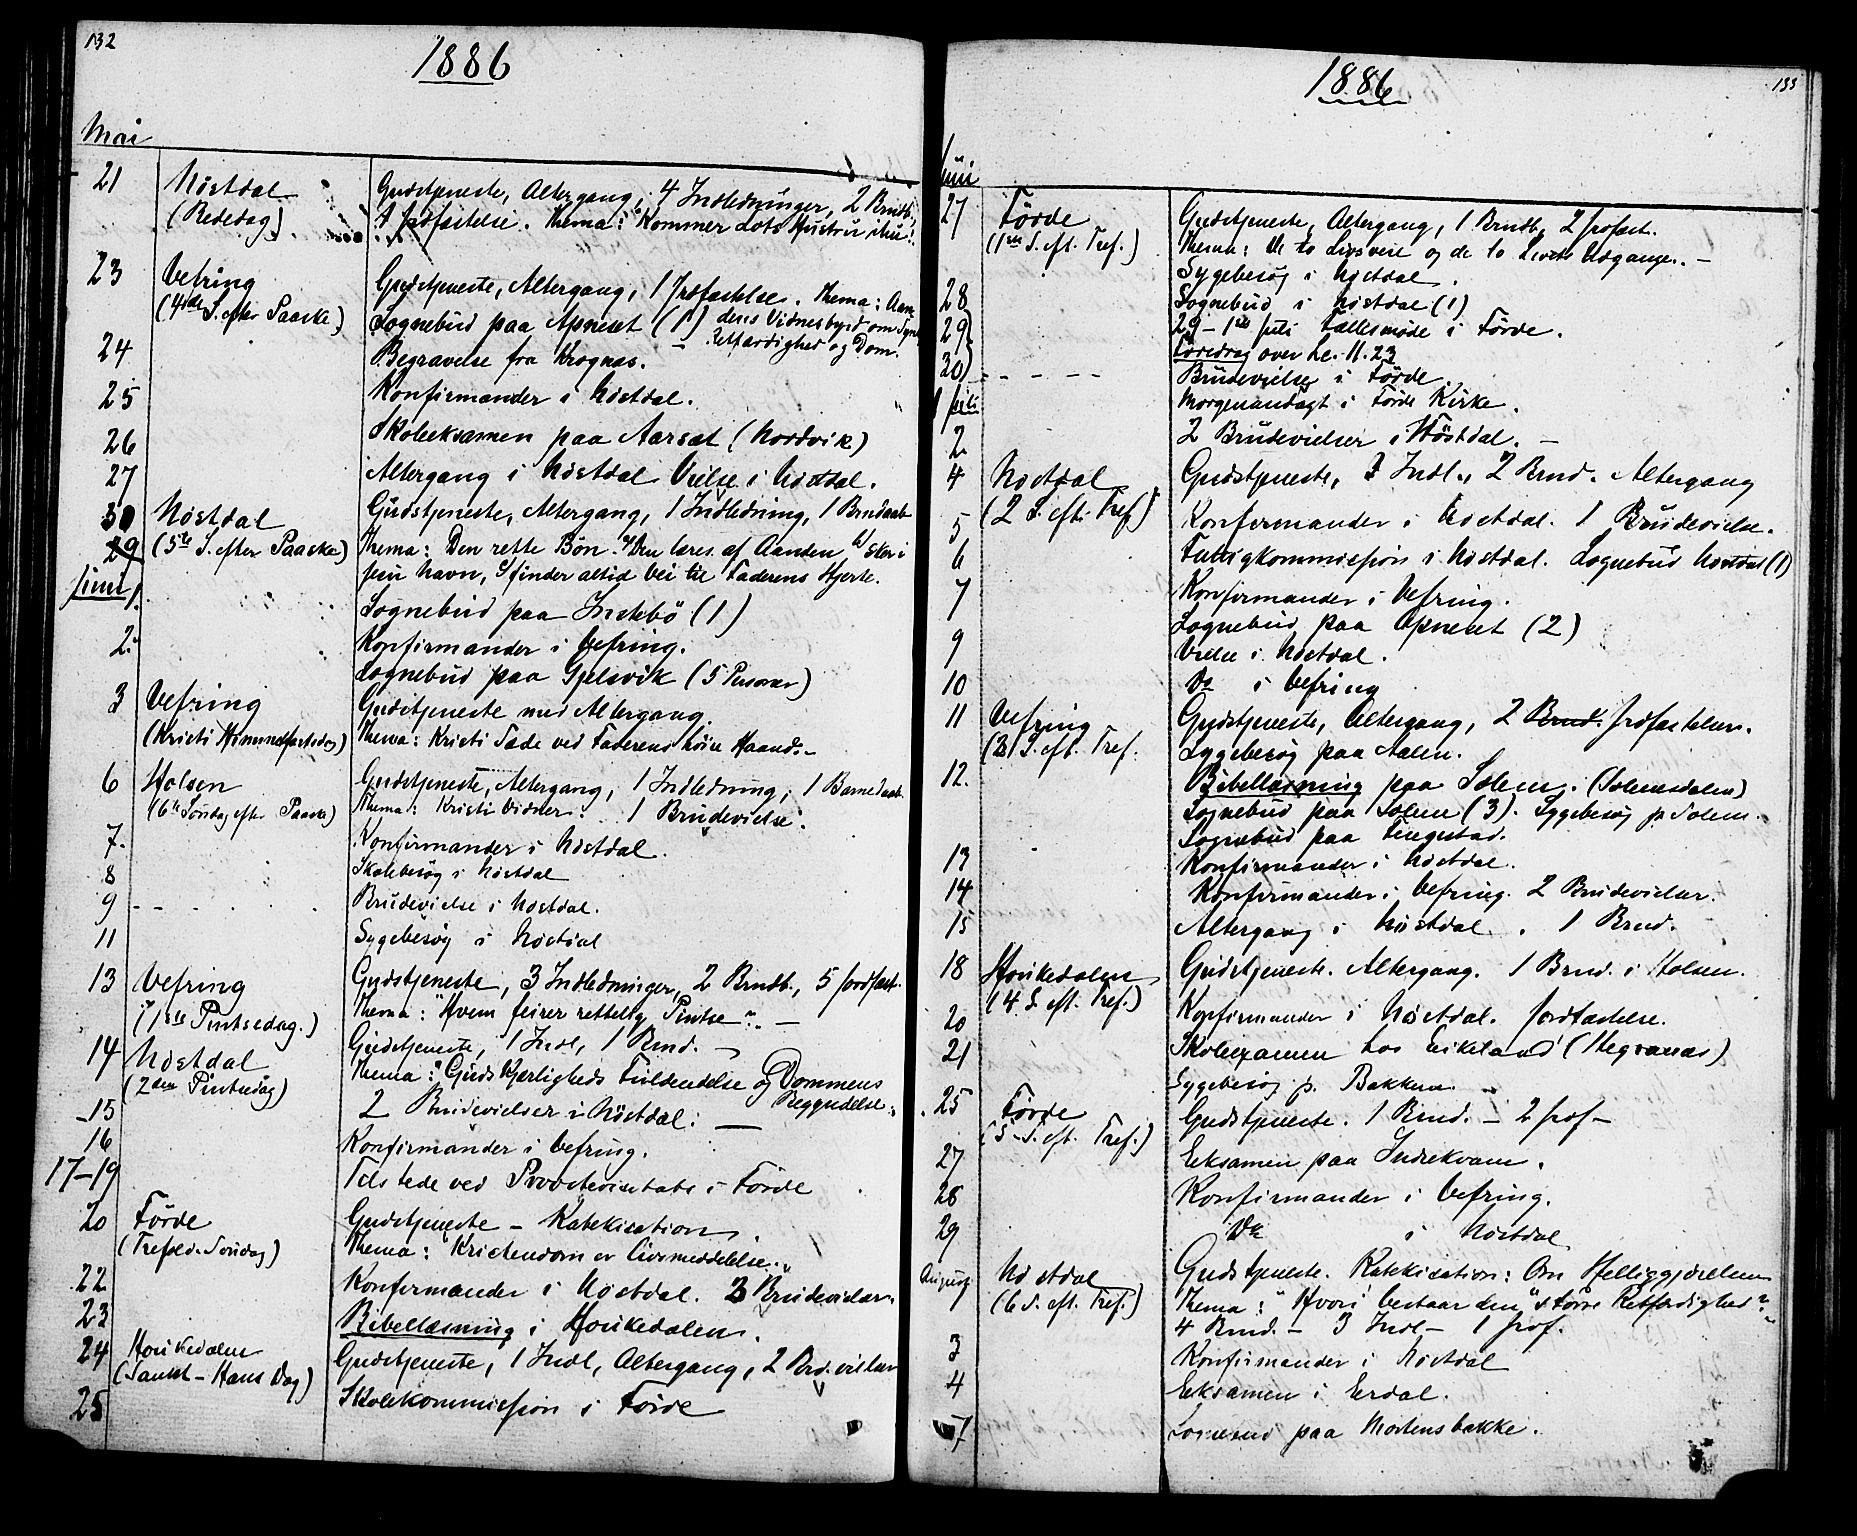 132
1886
Mai
21 Nöstdal Gudstjeneste, Altergang, 4 Indledninger, 2 Brndb.,
(Bededag) 1 Jrdfæstelse. Thema: "Kommer Lots Hustru ihu".
23 Vefring Gudstjeneste, Altergang, 1 Jrdfæstelse. Thema: Aan-
(4de S. efter Paaske) Sognebud paa Apneset (1) dens Vidnesbyrd om Synd
Retfærdighed og Dom.
24 Begravelse fra Krognæs.
25 Konfirmander i Nöstdal.
26 Skoleeksamen paa Aarsæt (Nordvik)
27 Altergang i Nöstdal Vielse i Nöstdal.
30 Nöstdal Gudstjeneste, Altergang, 1 Indledning, 1 Brndaab
29 (5te S. efter Paaske) Thema: Den rette Bön. a) Den læres af Aanden b) Sker i
Juni Jesu Navn, c) finder altid Vei til Faderens Hjerte.
1. Sognebud paa Indrebö (1)
2. Konfirmander i Vefring.
Sognebud paa Gjelsvik (5 Personer)
3 Vefring Gudstjeneste med Altergang.
(Kristi Himmelfartsdag) Thema: Kristi Sæde ved Faderens höire Haand.-
6 Holsen Gudstjeneste, Altergang, 1 Indledning, 1 Barnedaab.
(6te Söndag efter Paaske) Thema: Kristi Vidner. 1 Brudevielse.
7. Konfirmander i Nöstdal.
8 Skolebesög i Nöstdal
9 Brudevielse i Nöstdal.
11 Sygebesög i Nöstdal
13 Vefring Gudstjeneste, 3 Indledninger, 2 Brndb., 5 Jordfæst.
(1ste Pintsedag.) Thema: "Hvem feirer rettelig Pintse".
14 Nöstdal Gudstjeneste, 1 Indl, 1 Brnd.
(2den Pintsedag) Thema: "Guds Kjærligheds Fuldendelse og Dommens
Begyndelse".
15 2 Brudevielser i Nöstdal.
16 Konfirmander i Vefring.
17-19 Tilstede ved Provstevisitats i Förde
20 Förde Gudstjeneste - Katekisation.
(Trefold. Söndag) Thema: "Kristendom er Livsmeddelelse."
22 Konfirmander i Nöstdal. 3 Brudevielser.
23 Bibellæsning i Houkedalen.
24 Houkedalen Gudstjeneste, 1 Indl, Altergang, 2 Brd.vielser
(Sankt-Hans Dag)
25 Skolekommission i Förde
133
1886
Juni
27 Förde Gudstjeneste, Altergang, 1 Brndb, 2 Jrdfæst.
(1ste S. eft. Tref.) Thema: De to Livsveie og de to Livets Udgange. -
Sygebesög i Nöstdal.
28 Sognebud i Nöstdal (1)
29 29-1ste Juli Fællesmöde i Förde.
30 Foredrag over Lc. 11.23
Brudevielse i Förde
1 Juli Morgenandagt i Förde Kirke.
2 2 Brudevielser i Nöstdal. -
4 Nöstdal Gudstjeneste, 3 Indl., 2 Brnd. Altergang
(2 S. eft. Tref.)
5 Konfirmander i Nöstdal. 1 Brudevielse.
6 Fattigkommission i Nöstdal. Sognebud Nöstdal (1)
7 Konfirmander i Vefring.
Sognebud paa Apneset (2)
9 Vielse i Nöstdal.
10 Do i Vefring
11 Vefring Gudstjeneste, Altergang, 2 Brnd. Jrdfæstelser.
(3 S. eft. Tref. Sygebesög paa Aalen.
12. Bibellæsning paa Solem. (Solemsdalen)
Sognebud paa Solem (3). Sygebesög p. Solem.
Sognebud paa Tingstad.
13 Konfirmander i Nöstdal.
14 Konfirmander i Vefring. 2 Brudevielser.
15 Altergang i Nöstdal. 1 Brnd.
18 Houkedalen Gudstjeneste. Altergang. 1 Brnd. i Holsen.
(4 S. eft. Tref.)
20 Konfirmander i Nöstdal. Jordfæstelse.
21 Skoleexamen hos Eikeland (Hegrenæs)
Sygebesög p. Bakken.
25 Förde Gudstjeneste. 1 Brnd. - 2 Jrdf-
(5 S. eft. Tref.)
27 Eeksamen paa Indrekvam.
28 Konfirmander i Vefring.
29 Do i Nöstdal
August
1 Nöstdal Gudstjeneste. Katekisation: Om Helliggjörelsen
(6 S. eft. Tref.) Thema: "Hvori bestaar den "större Retfærdighed"?
4 Brnd. - 3 Indl - 1 Jrdf.
3 Konfirmander i Nöstdal
4 Eeksamen i Erdal.
7 Sognebud paa Mortensbakke.